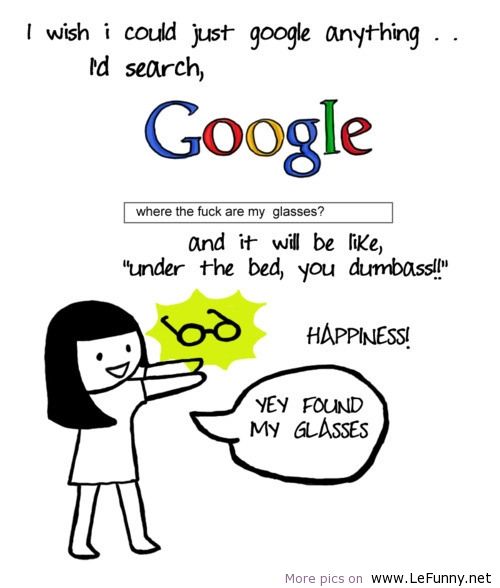 I wish i could just google anything . .
I'd search,
Google
where the fuck are my glasses?
and it will be like,
"under the bed, you dumbass!!"
HAPPINESS!
YEY FOUND
MY GLASSES
More pics on www.LeFunny.net